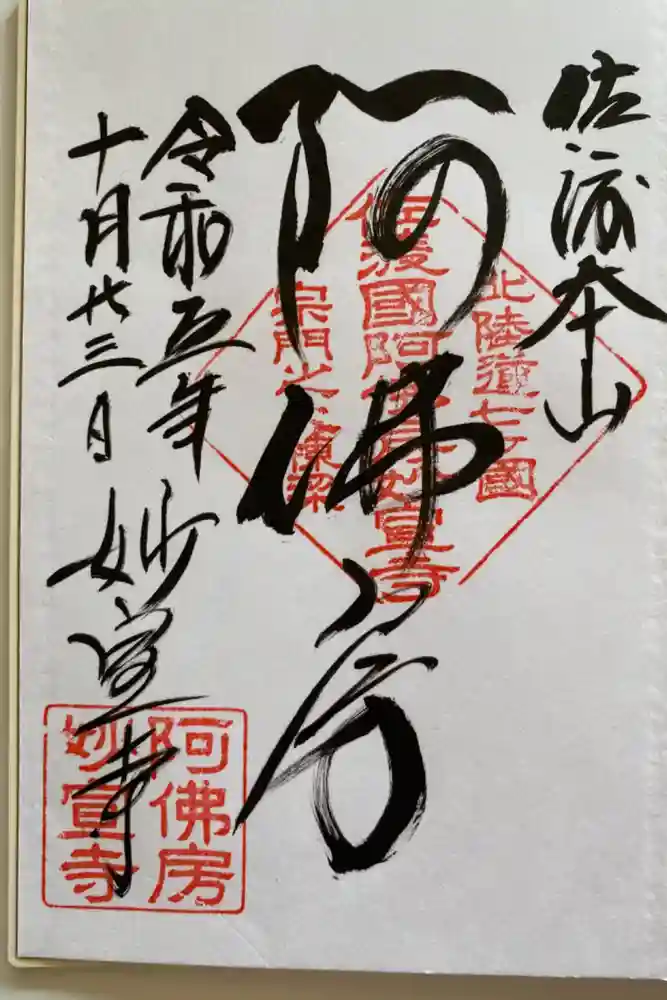 佐渡本山
阿佛房
北陸道七ヶ國
佐渡國阿佛房妙宣寺
宗門之棟梁
令和五年
十月廿三日
妙宣寺
阿佛房
妙宣寺